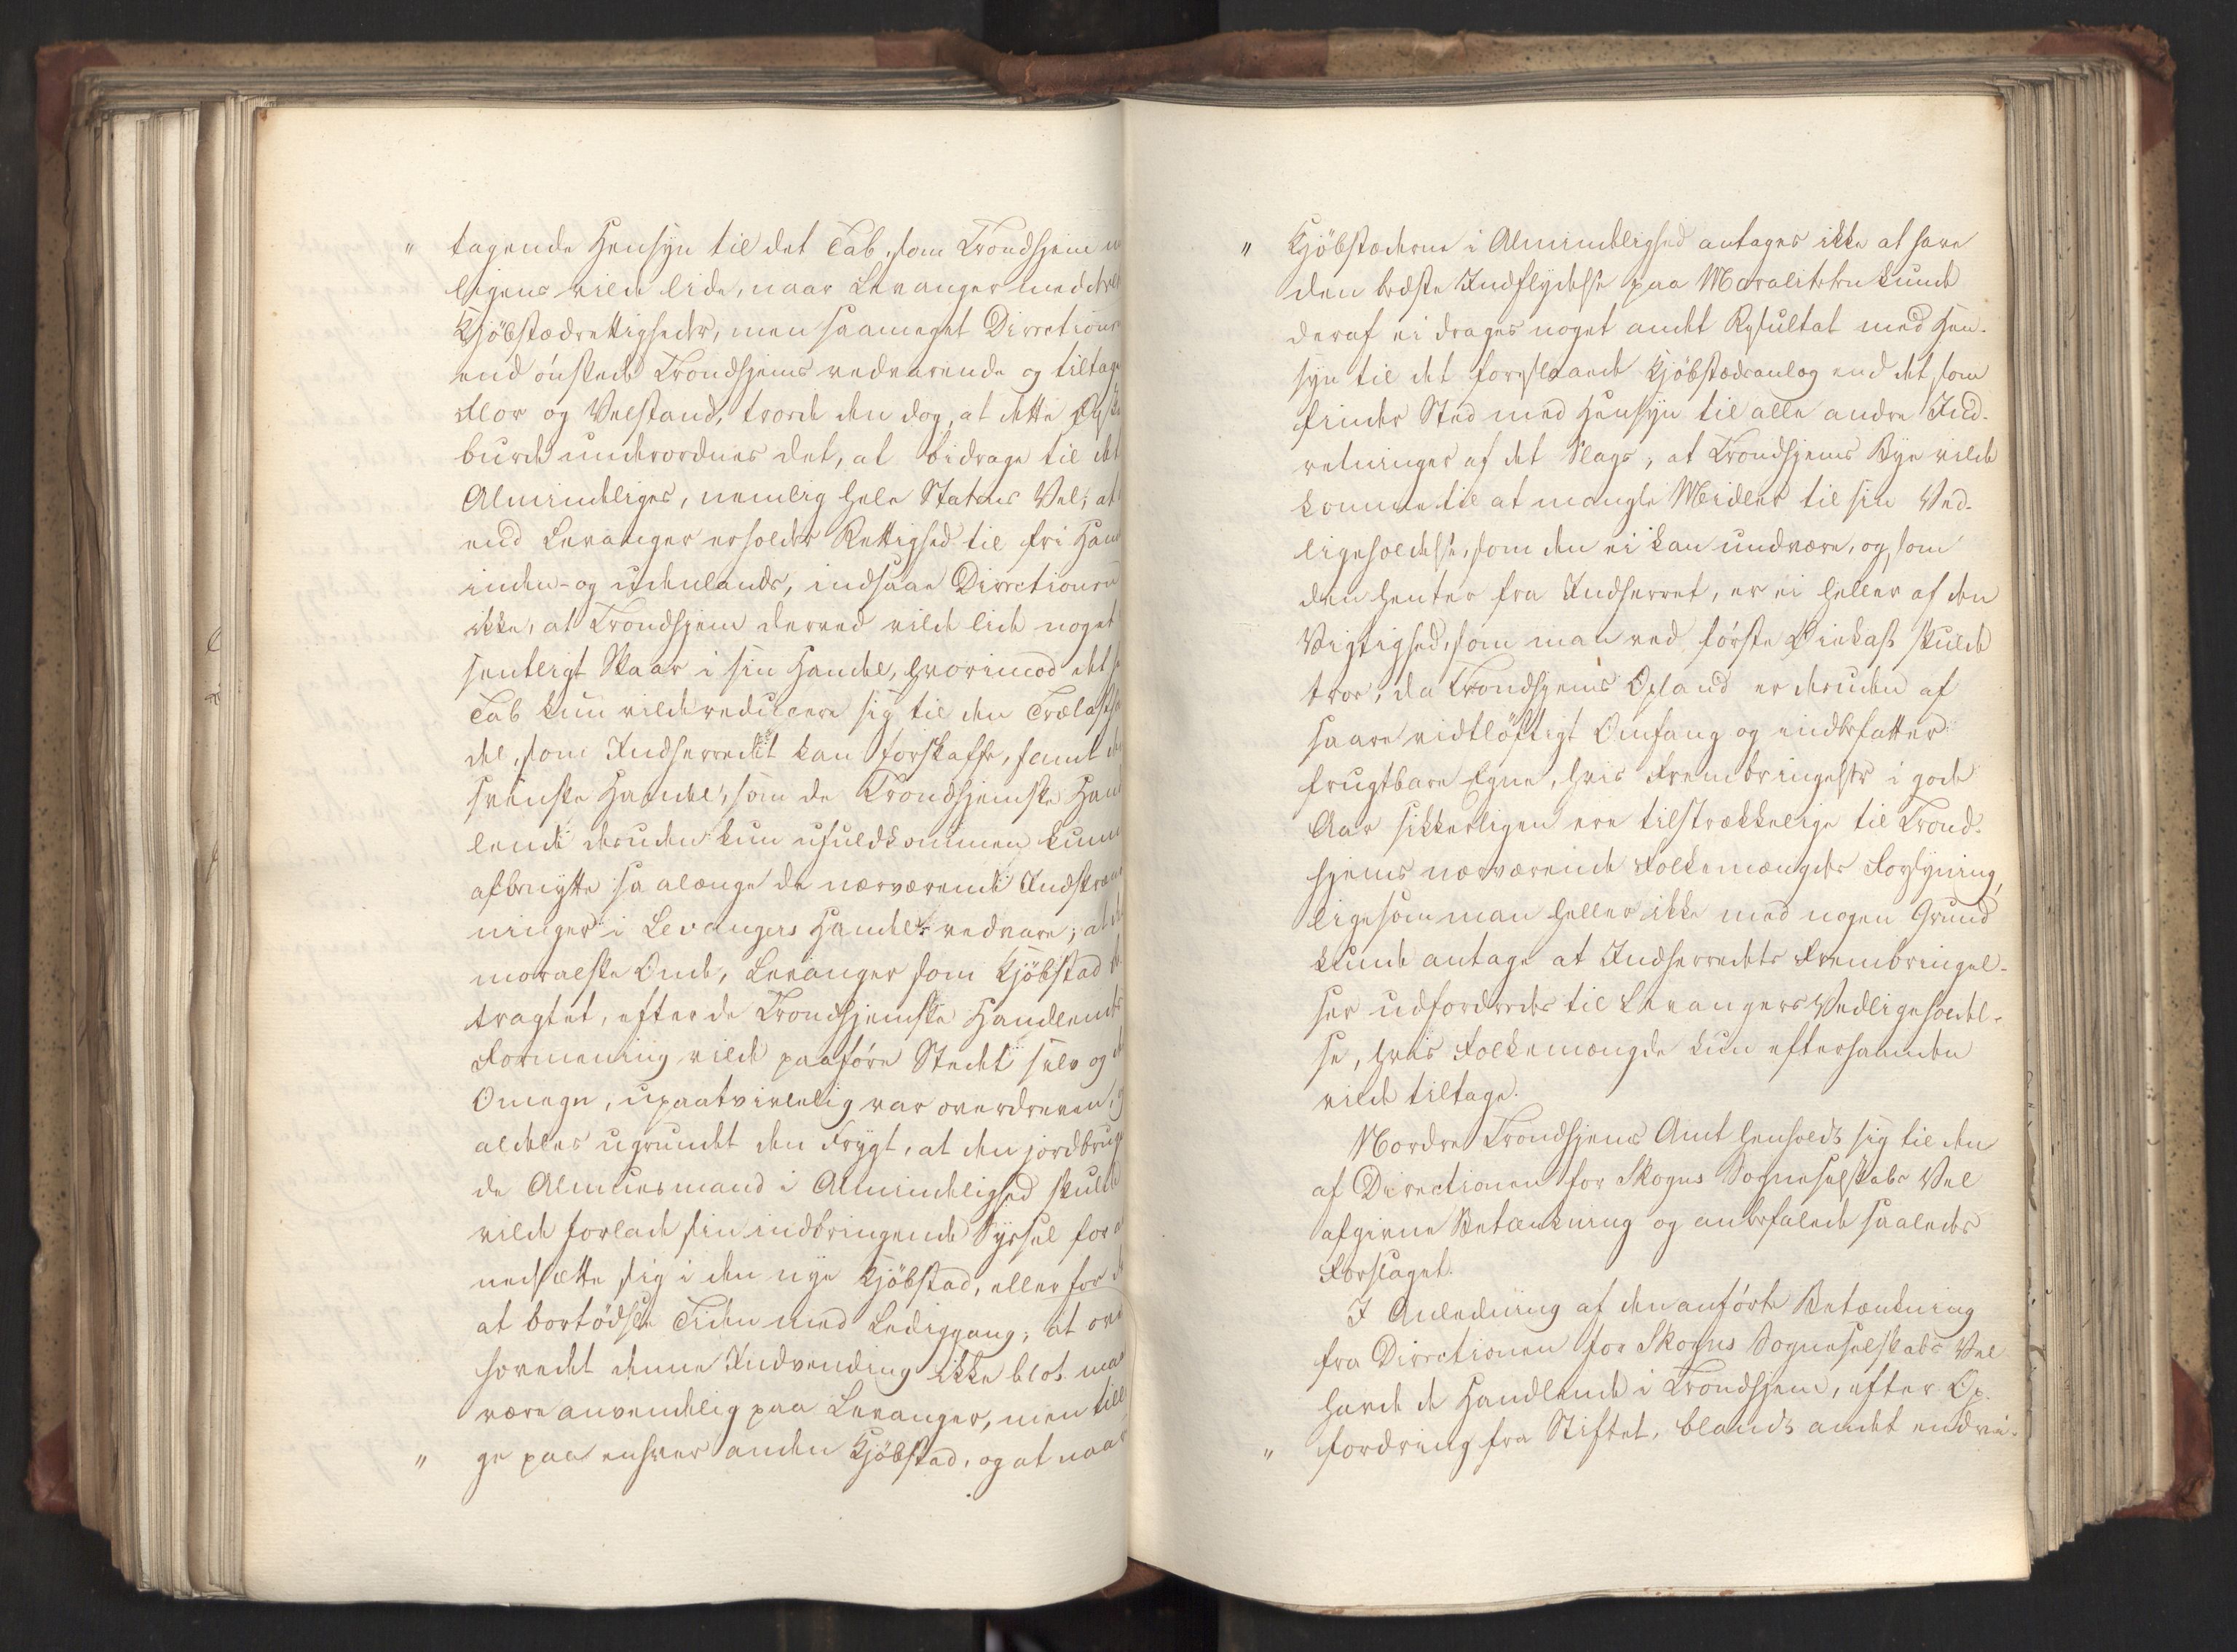 " tagende Hensyn til det Tab, som Trondhjem
ligens vilde lide, naar Levanger meddeles
Kjöbstædrettigheder, men saameget Directionen
end önskede Trondhjems vedvarende og tiltag
Flor og Velstand, troede den dog, at dette Ønske
burde underordnes det, at bidrage til det
Almindeliges, nemlig hele Statens Vel; at
end Levanger erholder Rettighed til fri Hand
inden- og udenlands, indsaae Directionen
ikke, at Trondhjem derved vilde lide noget
sentligt Skaar i sin Handel, hvorimod det
Tab kun vilde reducere sig til den Trælasth
del, som Indherredet kan forskaffe, samt
svenske Handel, som de Trondhjemske Hand
lende desuden kun ufuldkommen kunne
afbenytte saalænge de nærværende Indskræn
ninger i Levangers Handel vedvare; at
moralske Onde, Levanger som Kjöbstad
tragtet, efter de Trondhjemske Handlendes
Formening vilde paaføre Stedet selv og
Omegn, upaatvivlelig var overdreven,
aldeles ugrundet den Frygt, at den jordbrug
de Almuesmand i Almindelighed skulde
vilde forlade sin indbringende Syssel for
nedsætte sig i den nye Kjöbstad, eller for
at bortödsle Tiden med Lediggang; at ove
hovedet denne Indvending ikke blot maa
være anvendelig paa Levanger, men till
" ge paa enhver anden Kjöbstad, og at naar
" Kjöbstæderne i Almindelighed antages ikke at have
den bedste Indflydelse paa Moraliteten kunde
deraf ei drages noget andet Resultat med Hen-
syn til det foreslaaede Kjöbstædanlæg end det, som
finder Sted med Hensyn til alle andre Ind-
retninger af det Slags; at Trondhjems Bye vilde
komme til at mangle Midler til sin Ved-
ligeholdelse, som den ei kan undvære, og som
den henter fra Indherret, er ei heller af den
Vigtighed, som man ved förste Øiekast skulde
troe, da Trondhjems Opland er desuden af
saare vidtlöftigt Omfang og indbefatter
frugtbare Egne, hvis Frembringelser i gode
Aar sikkerligen ere tilstrækkelige til Trond-
hjems nærværende Folkemængdes Forsyning,
ligesom man heller ikke med nogen Grund
kunde antage at Indherredets Frembringel-
ser udfordredes til Levangers Vedligeholdel-
se, hvis Folkemængde kun efterhaanden
vilde tiltage.
Nordre Trondhjems Amt henholdt sig til den
af Directionen for Skogns Sogneselskabs Vel
afgivne Betænkning og anbefalede saaledes
Forslaget.
I Anledning af den anförte Betænkning
fra Directionen for Skogns Sogneselskabs Vel
havde de Handlende i Trondhjem, efter Op-
" fordring fra Stiftet, blandt andet endvi-